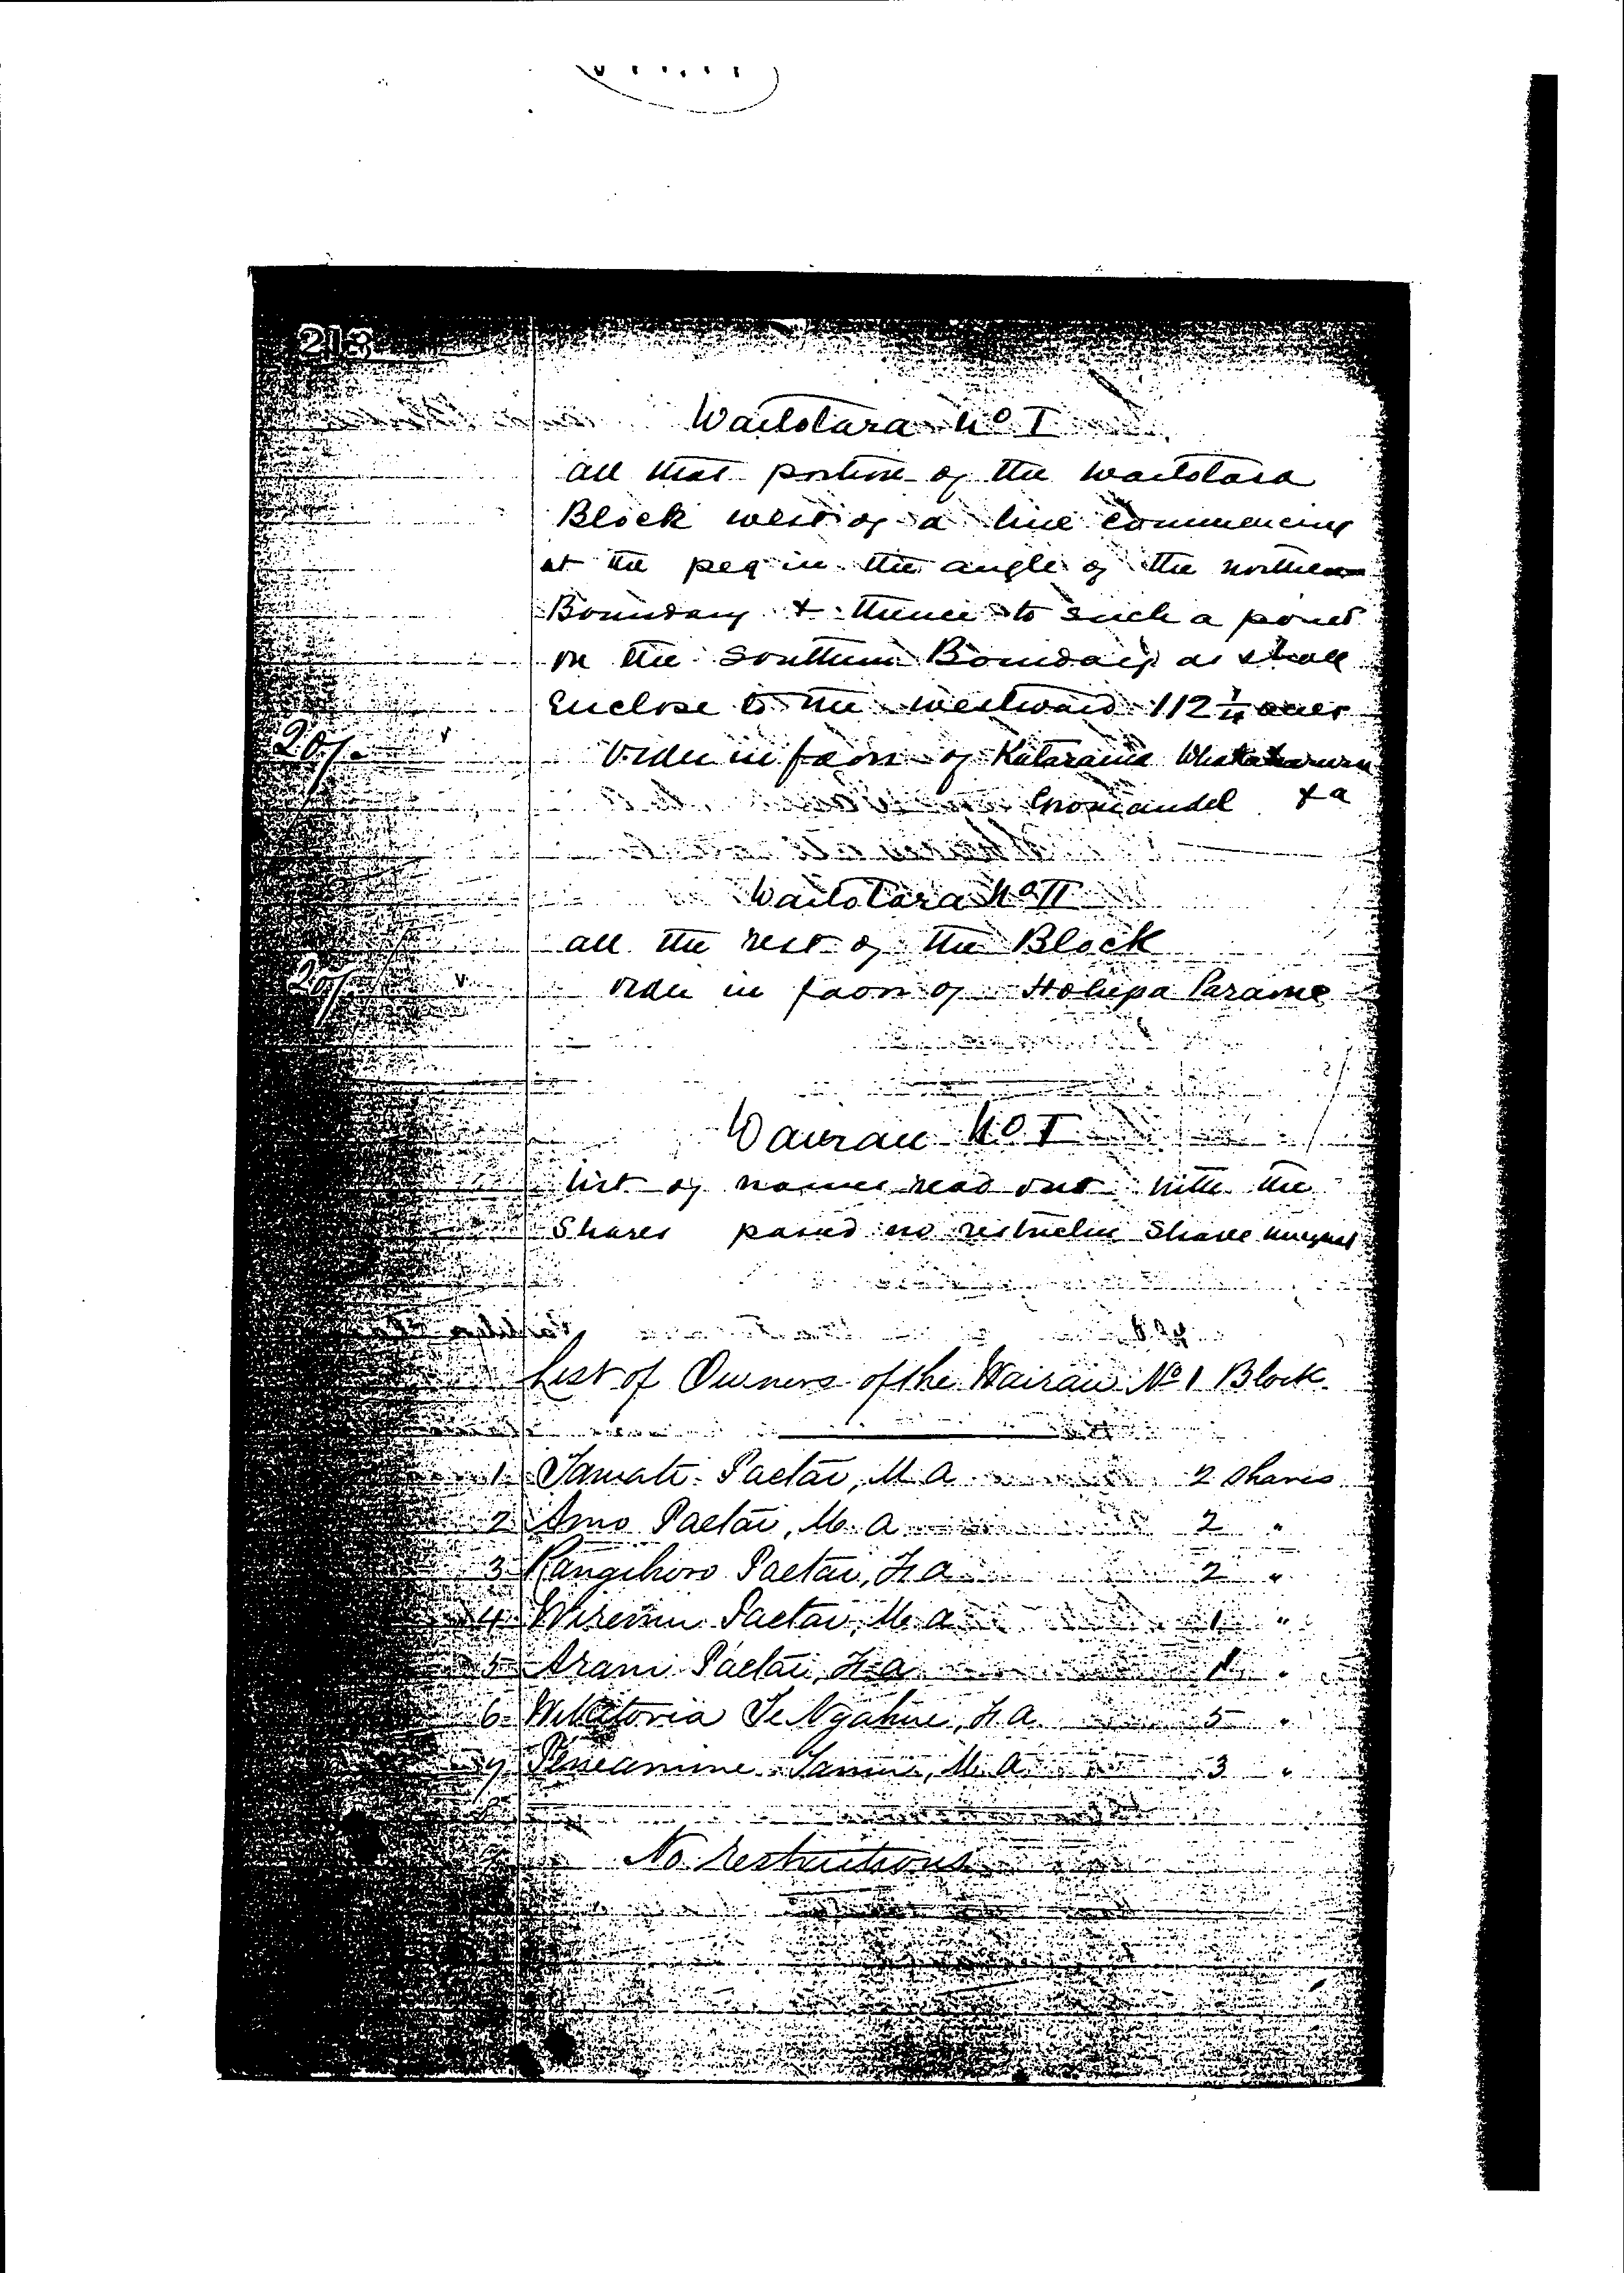 213
Waitotara No I
all that portion of the Waitotara
Block west of a line commencing
at the peg in the angle of the northern
Boundary & thence to such a point
on the Southern Boundary as shall
Enclose to the westward 112 1/4 acres
20/- Order in favor of Katarina
Coromandel f a
Waitotara No II
all the rest of the Block
20/- order in favor of Hohepa Paraone
Wairau No I
list of names read out with the
Shares passed no restriction Shares unequal
List of Owners of the Wairau No 1 Block.
1 Tamati Paetai, M. a 2 shares
2 Amo Paetai, M. a 2 "
3 Rangihoro Paetai, F. a 2 "
4 Wiremu Paetai, M. a 1 "
5 Arani Paetai, F. a 1 "
6 Wikitoria Te Ngahue, F. a 5 "
7 Peneamine Tamui, M. a 3 "
8
9 No restrictions